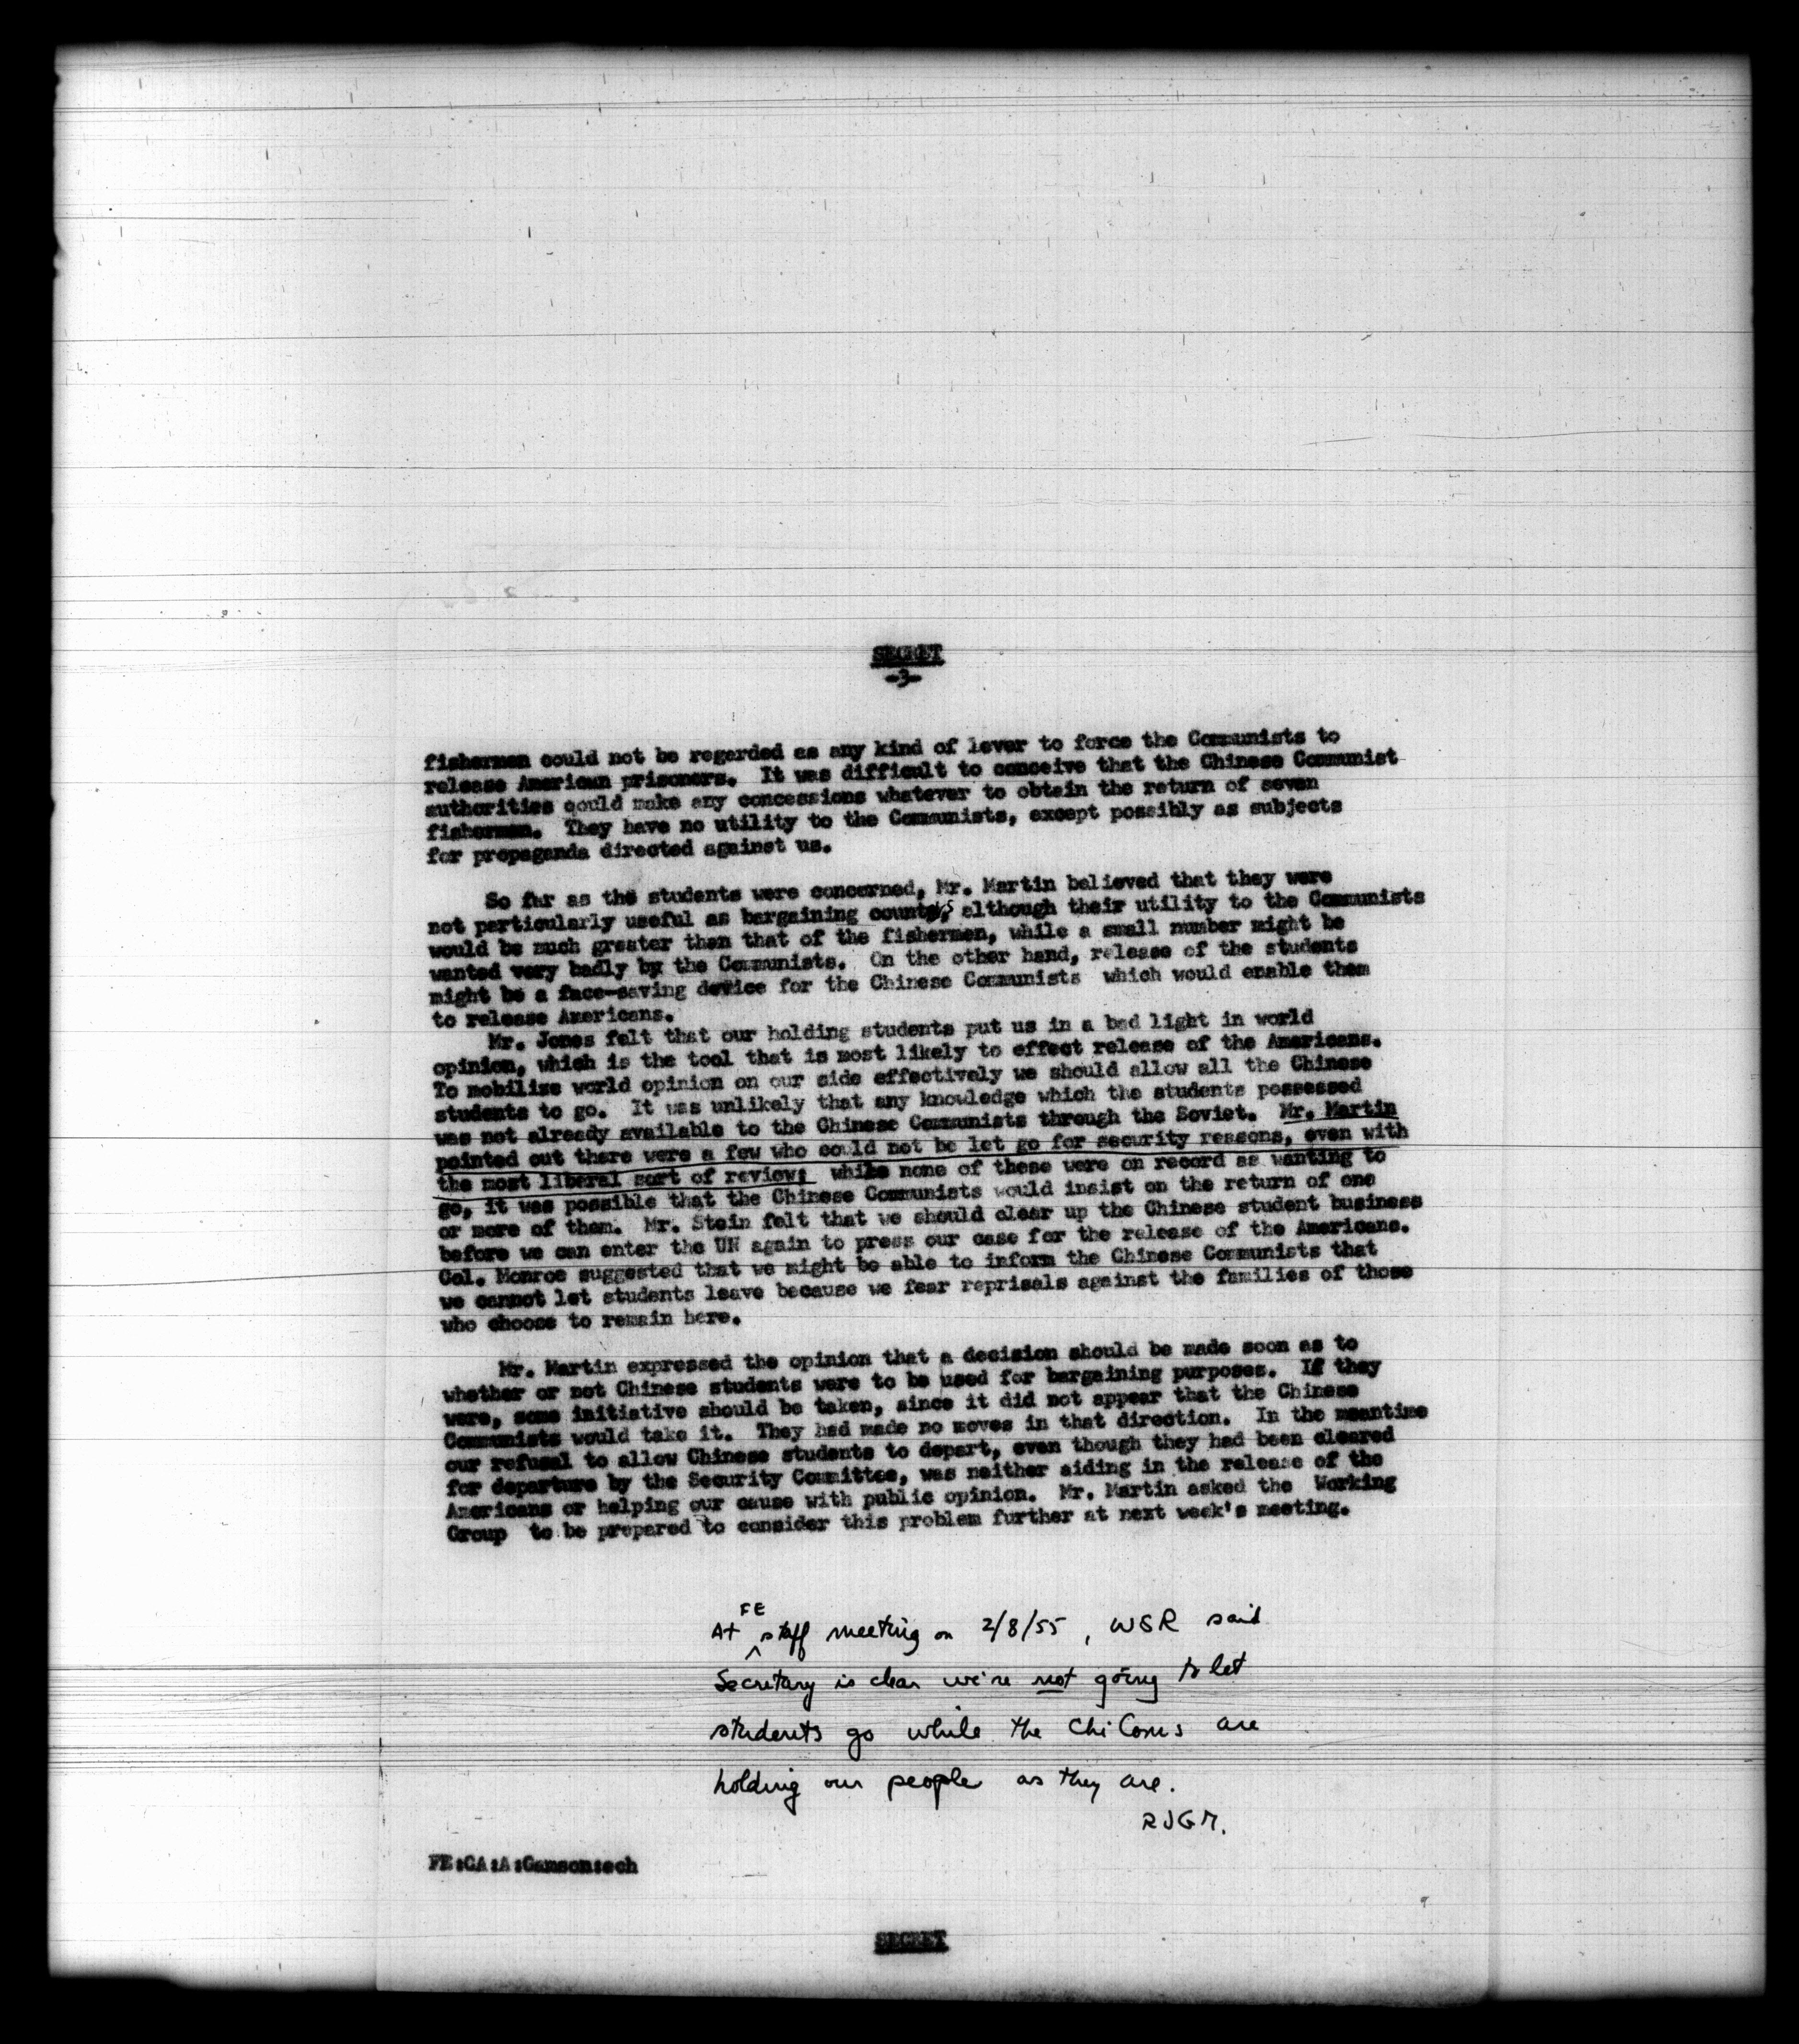 SECRET
-3-
fishermen could not be regarded as any kind of lever to force the Communists to
release American prisoners. It was difficult to conceive that the Chinese Communist
authorities would make any concessions whatever to obtain the return of seven
fishermen. They have no utility to the Communists, except possibly as subjects
for propaganda directed against us.
So far as the students were concerned, Mr. Martin believed that they were
not particularly useful as bargaining counters, although their utility to the Communists
would be much greater than that of the fishermen, while a small number might be
wanted very badly by the Communists. On the other hand, release of the students
might be a face-saving device for the Chinese Communists which would enable them
to release Americans.
Mr. Jones felt that our holding students put us in a bad light in world
opinion, which is the tool that is most likely to effect release of the Americans.
To mobilize world opinion on our side effectively we should allow all the Chinese
students to go. It was unlikely that any knowledge which the students possessed
was not already available to the Chinese Communists through the Soviet. Mr. Martin
pointed out there were a few who could not be let go for security reasons, even with
the most liberal sort of review; while none of these were on record as wanting to
go, it was possible that the Chinese Communists would insist on the return of one
or more of them. Mr. Stein felt that we should clear up the Chinese student business
before we can enter the UN again to press our case for the release of the Americans.
Col. Monroe suggested that we might be able to inform the Chinese Communists that
we cannot let students leave because we fear reprisals against the families of those
who choose to remain here.
Mr. Martin expressed the opinion that a decision should be made soon as to
whether or not Chinese students were to be used for bargaining purposes. If they
were, some initiative should be taken, since it did not appear that the Chinese
Communists would take it. They had made no moves in that direction. In the meantime
our refusal to allow Chinese students to depart, even though they had been cleared
for departure by the Security Committee, was neither aiding in the release of the
Americans or helping our cause with public opinion. Mr. Martin asked the Working
Group to be prepared to consider this problem further at next week's meeting.
At FE staff meeting on 2/8/55, WSR said
Secretary is clear we're not going to let
students go while the ChiComs are
holding our people as they are.
RJGM.
FE:CA:A:Gamson:ech
SECRET